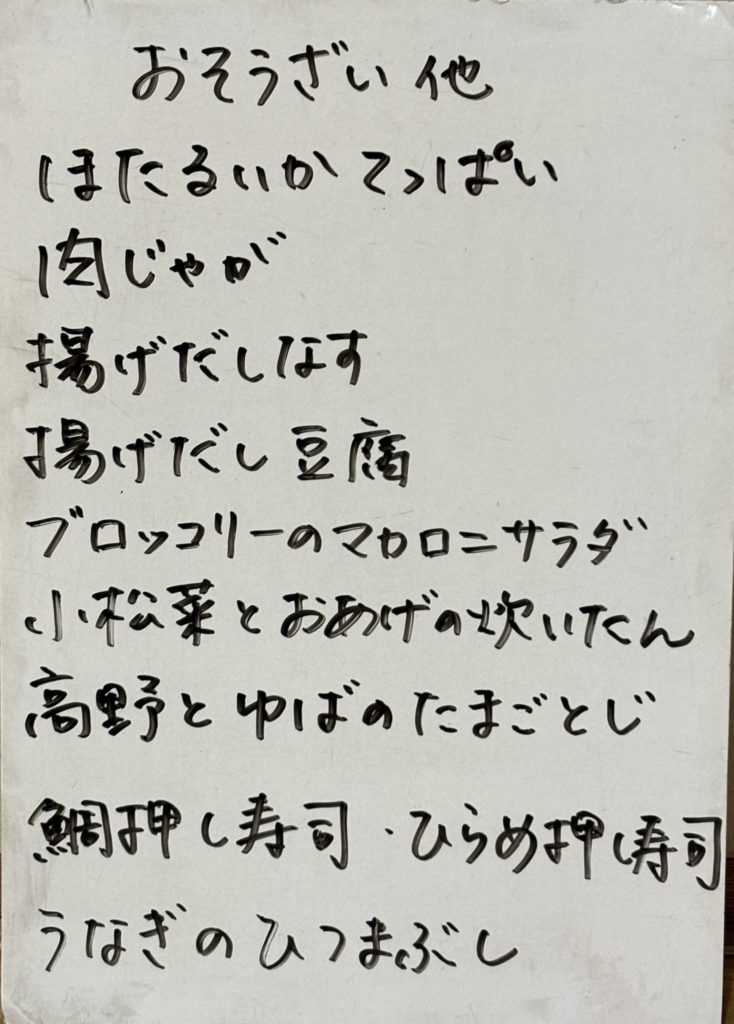 おそうざい 他
ほたるいか てっぱい
肉じゃが
揚げだしなす
揚げだし豆腐
ブロッコリーのマカロニサラダ
小松菜とおあげの炊いたん
高野とゆばのたまごとじ
鯛押し寿司・ひらめ押し寿司
うなぎのひつまぶし